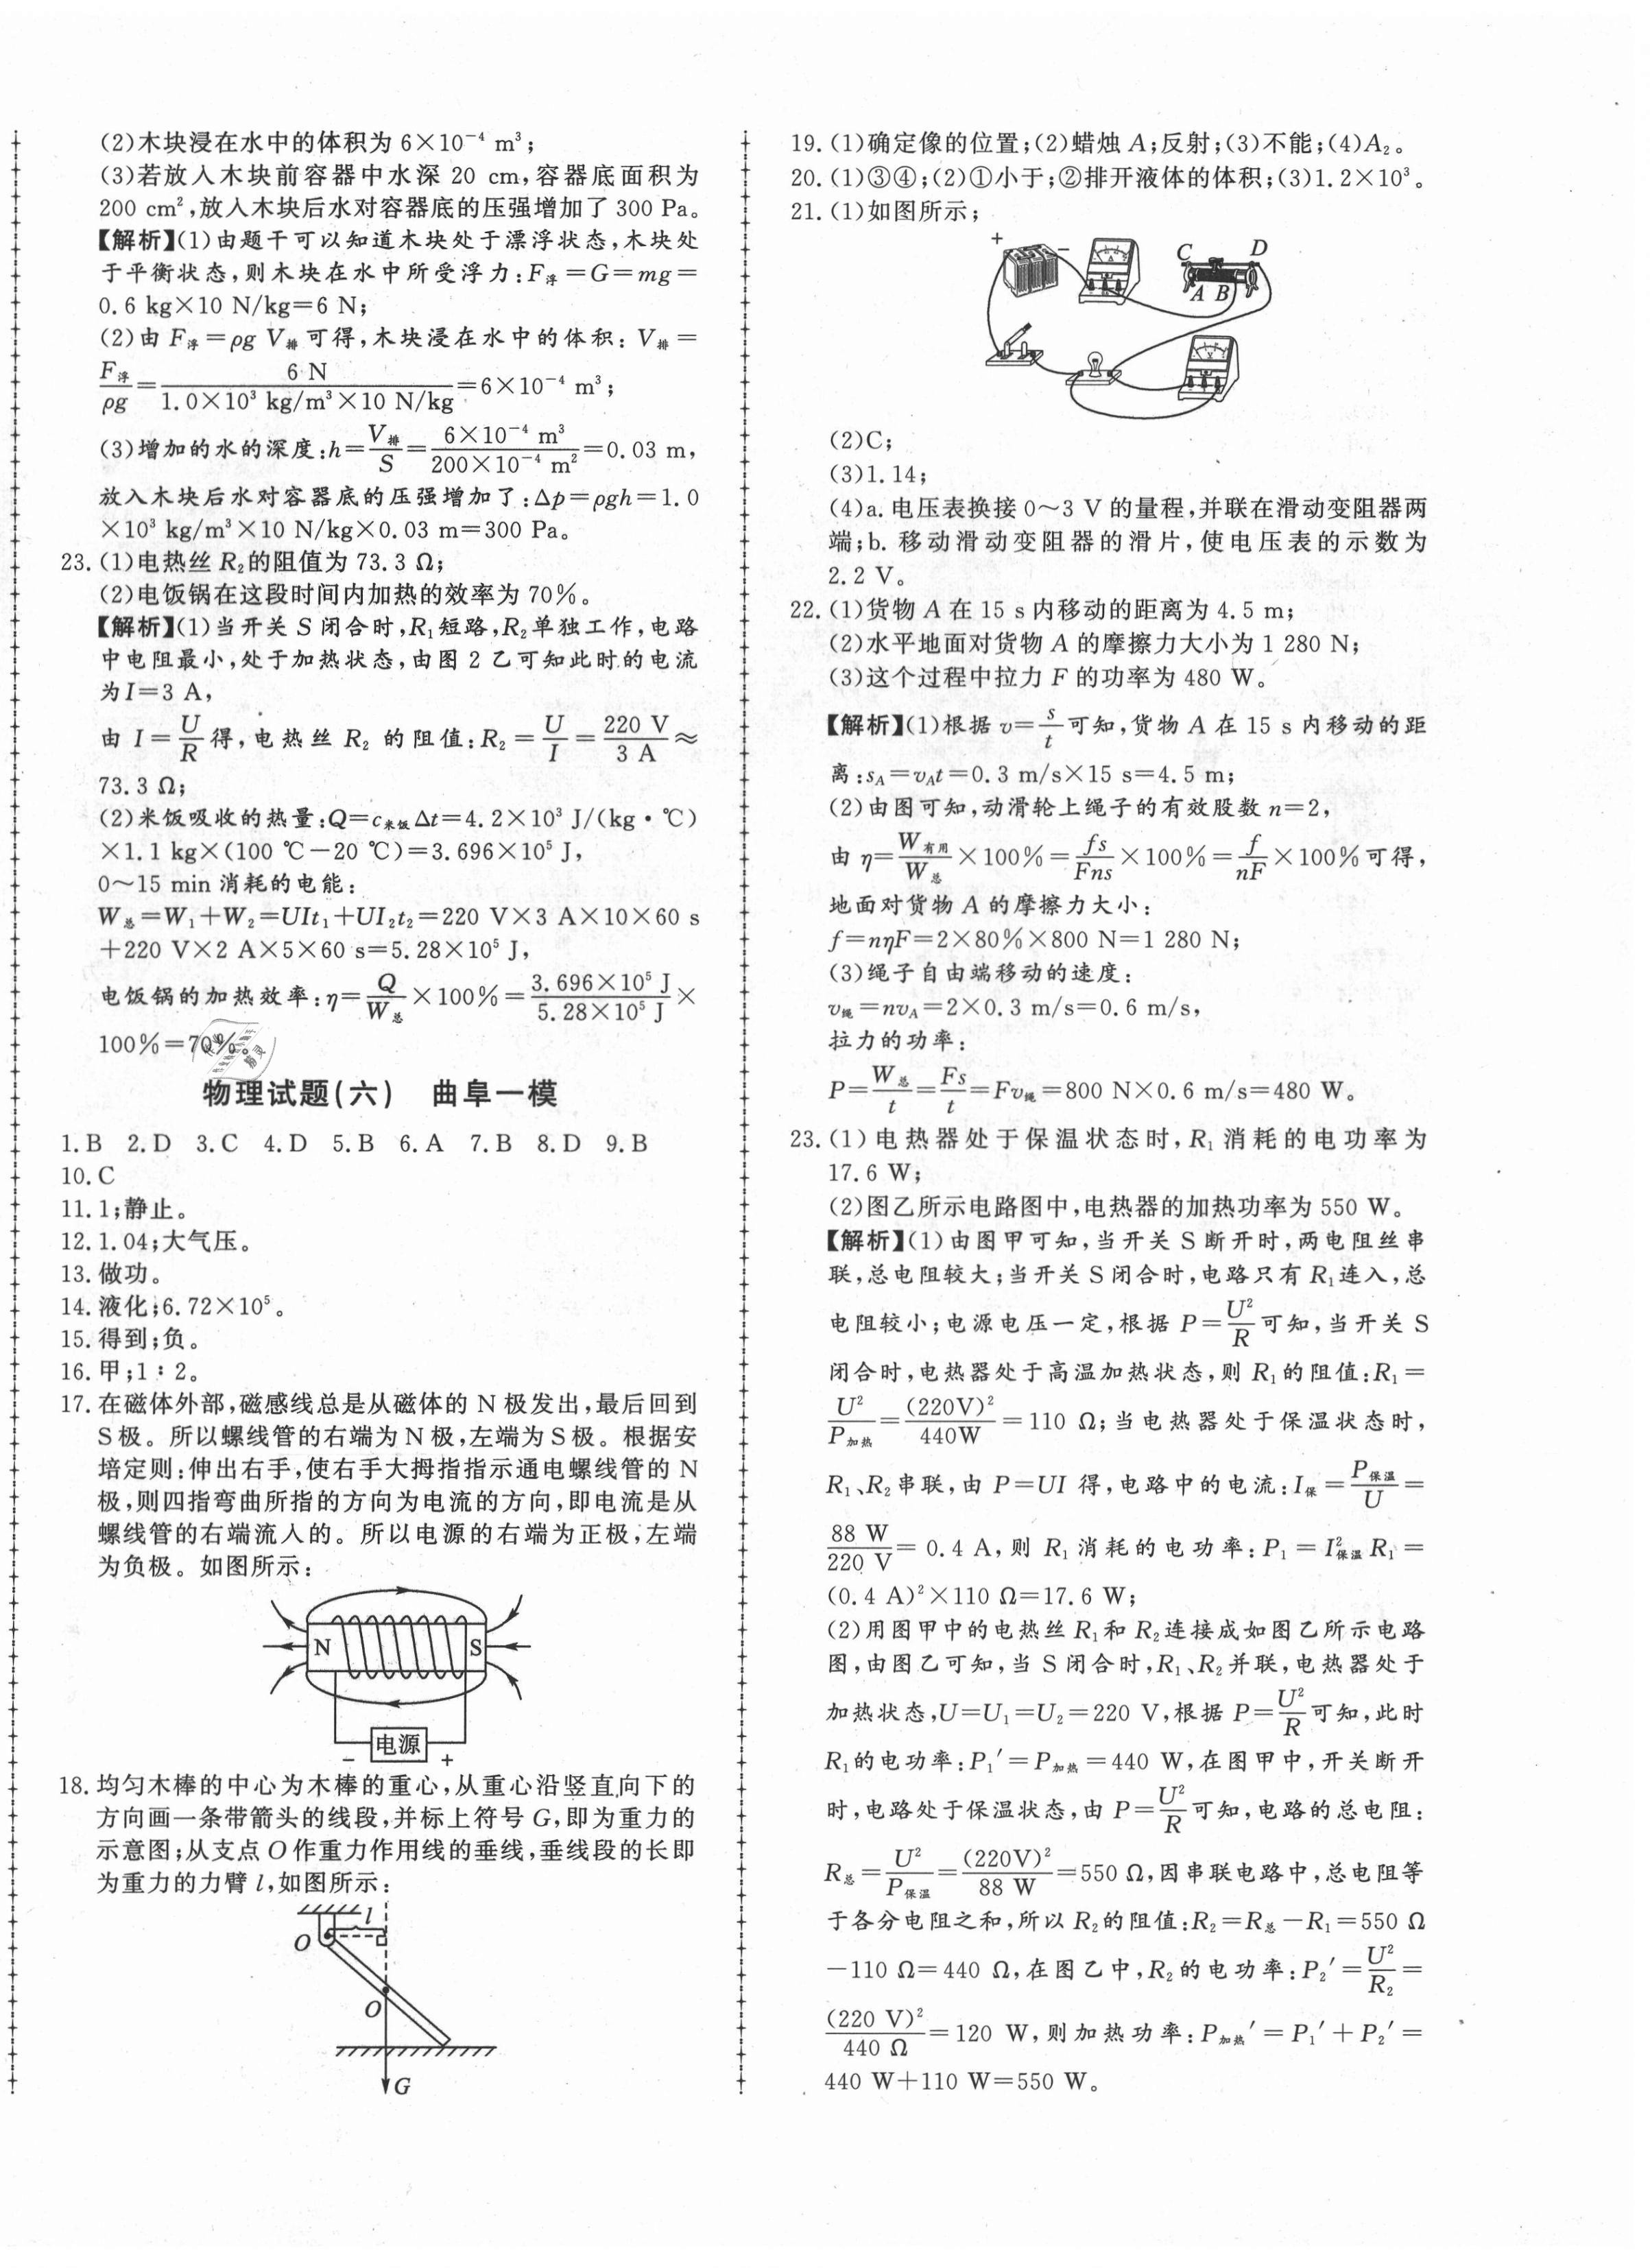 (2)木块浸在水中的体积为 6×10⁻⁴ m³;
(3)若放入木块前容器中水深 20 cm,容器底面积为
200 cm²,放入木块后水对容器底的压强增加了 300 Pa。
【解析】(1)由题干可以知道木块处于漂浮状态,木块处
于平衡状态,则木块在水中所受浮力:F浮=G=mg=
0.6 kg×10 N/kg=6 N;
(2)由 F浮=ρg V排可得,木块浸在水中的体积: V排=
F浮/ρg = 6 N/(1.0×10³ kg/m³×10 N/kg)=6×10⁻⁴ m³;
(3)增加的水的深度:h=V排/S=(6×10⁻⁴ m³)/(200×10⁻⁴ m²)=0.03 m,
放入木块后水对容器底的压强增加了:Δp=ρgh=1.0
×10³ kg/m³×10 N/kg×0.03 m=300 Pa。
23.(1)电热丝 R₂的阻值为 73.3 Ω;
(2)电饭锅在这段时间内加热的效率为 70%。
【解析】(1)当开关 S 闭合时,R₁短路,R₂单独工作,电路
中电阻最小,处于加热状态,由图 2 乙可知此时的电流
为I=3 A,
由 I=U/R得,电热丝 R₂ 的阻值:R₂=U/I=220 V/3 A≈
73.3 Ω;
(2)米饭吸收的热量:Q=c米饭Δt=4.2×10³ J/(kg·℃)
×1.1 kg×(100 ℃-20 ℃)=3.696×10⁵ J,
0~15 min 消耗的电能:
W总=W₁+W₂=UIt₁+UI₂t₂=220 V×3 A×10×60 s
+220 V×2 A×5×60 s=5.28×10⁵ J,
电饭锅的加热效率:η=Q/W总×100%=(3.696×10⁵ J)/(5.28×10⁵ J)×
100%=70%。
物理试题(六) 曲阜一模
1.B 2.D 3.C 4.D 5.B 6.A 7.B 8.D 9.B
10.C
11.1;静止。
12.1.04;大气压。
13.做功。
14.液化;6.72×10⁵。
15.得到;负。
16.甲;1∶2。
17.在磁体外部,磁感线总是从磁体的 N 极发出,最后回到
S极。所以螺线管的右端为N极,左端为S极。根据安
培定则:伸出右手,使右手大拇指指示通电螺线管的 N
极,则四指弯曲所指的方向为电流的方向,即电流是从
螺线管的右端流入的。所以电源的右端为正极,左端
为负极。如图所示:
N S
电源
- +
18.均匀木棒的中心为木棒的重心,从重心沿竖直向下的
方向画一条带箭头的线段,并标上符号 G,即为重力的
示意图;从支点 O 作重力作用线的垂线,垂线段的长即
为重力的力臂 l,如图所示:
l
O
O
G
19.(1)确定像的位置;(2)蜡烛 A;反射;(3)不能;(4)A₂。
20.(1)③④;(2)①小于;②排开液体的体积;(3)1.2×10³。
21.(1)如图所示;
+ - C D
A B
A
V
(2)C;
(3)1.14;
(4)a.电压表换接 0~3 V 的量程,并联在滑动变阻器两
端;b.移动滑动变阻器的滑片,使电压表的示数为
2.2 V。
22.(1)货物 A 在 15 s 内移动的距离为 4.5 m;
(2)水平地面对货物 A 的摩擦力大小为 1 280 N;
(3)这个过程中拉力 F 的功率为 480 W。
【解析】(1)根据 v=s/t可知,货物 A 在 15 s 内移动的距
离:sA=vAt=0.3 m/s×15 s=4.5 m;
(2)由图可知,动滑轮上绳子的有效股数 n=2,
由 η=W有用/W总×100%=fs/Fns×100%=f/nF×100%可得,
地面对货物 A 的摩擦力大小:
f=nηF=2×80%×800 N=1 280 N;
(3)绳子自由端移动的速度:
v绳=nvA=2×0.3 m/s=0.6 m/s,
拉力的功率:
P=W总/t=Fs/t=Fv绳=800 N×0.6 m/s=480 W。
23.(1)电热器处于保温状态时,R₁消耗的电功率为
17.6 W;
(2)图乙所示电路图中,电热器的加热功率为 550 W。
【解析】(1)由图甲可知,当开关 S 断开时,两电阻丝串
联,总电阻较大;当开关S闭合时,电路只有R₁连入,总
电阻较小;电源电压一定,根据 P=U²/R可知,当开关 S
闭合时,电热器处于高温加热状态,则 R₁的阻值:R₁=
U²/P加热=(220V)²/440W=110 Ω;当电热器处于保温状态时,
R₁、R₂串联,由 P=UI 得,电路中的电流:I保=P保温/U=
88 W/220 V=0.4 A,则 R₁消耗的电功率:P₁=I²保温R₁=
(0.4 A)²×110 Ω=17.6 W;
(2)用图甲中的电热丝 R₁和 R₂连接成如图乙所示电路
图,由图乙可知,当 S 闭合时,R₁、R₂并联,电热器处于
加热状态,U=U₁=U₂=220 V,根据 P=U²/R可知,此时
R₁的电功率:P₁′=P加热=440 W,在图甲中,开关断开
时,电路处于保温状态,由 P=U²/R可知,电路的总电阻:
R总=U²/P保温=(220V)²/88 W=550 Ω,因串联电路中,总电阻等
于各分电阻之和,所以 R₂的阻值:R₂=R总-R₁=550 Ω
-110 Ω=440 Ω,在图乙中,R₂的电功率:P₂′=U²/R₂=
(220 V)²/440 Ω=120 W,则加热功率:P加热′=P₁′+P₂′=
440 W+110 W=550 W。